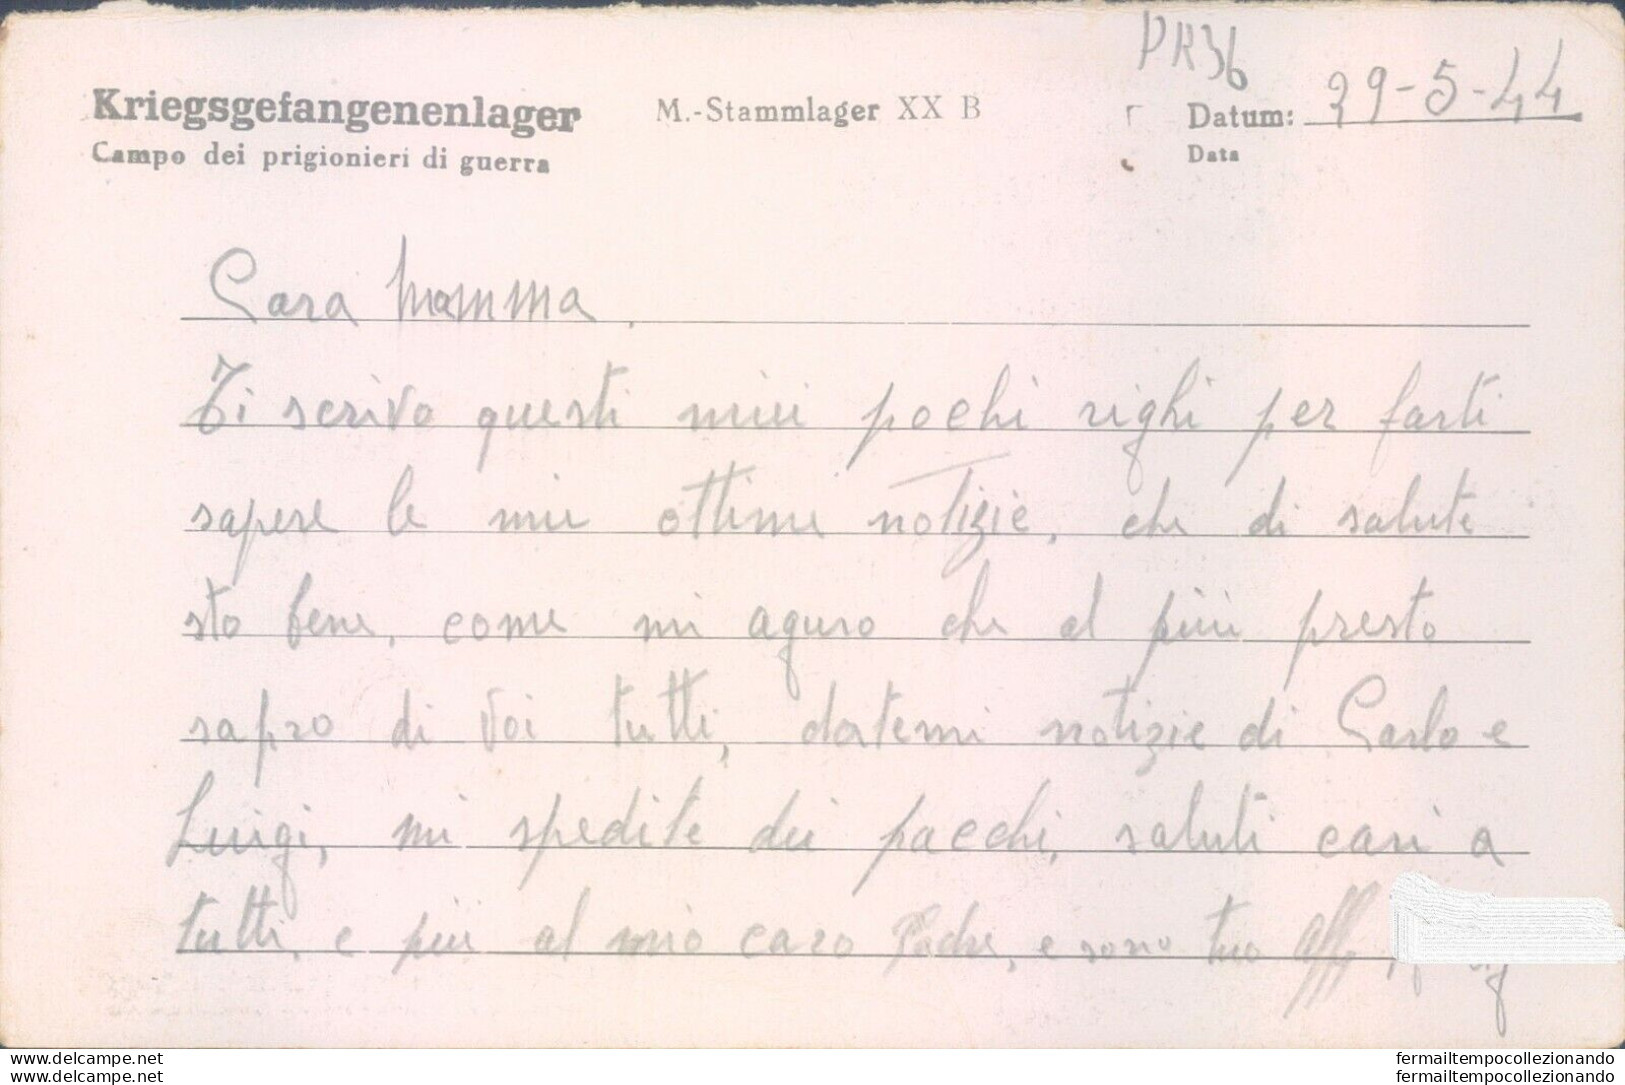 PR36
Kriegsgefangenenlager M.-Stammlager XX B Datum: 29-5-44
Campo dei prigionieri di guerra Data
Cara Mamma,
Ti scrivo questi miei pochi righi per farti
sapere le mie ottime notizie, che di salute
sto bene, come mi aguro che al più presto
sapro di voi tutti, datemi notizie di Carlo e
Luigi, mi spedite dei pacchi, saluti cari a
tutti, e più al mio caro Padre, e sono tuo aff
www.delcampe.net fermailtempocollezionando
www.delcampe.net fermailtempocollezionando